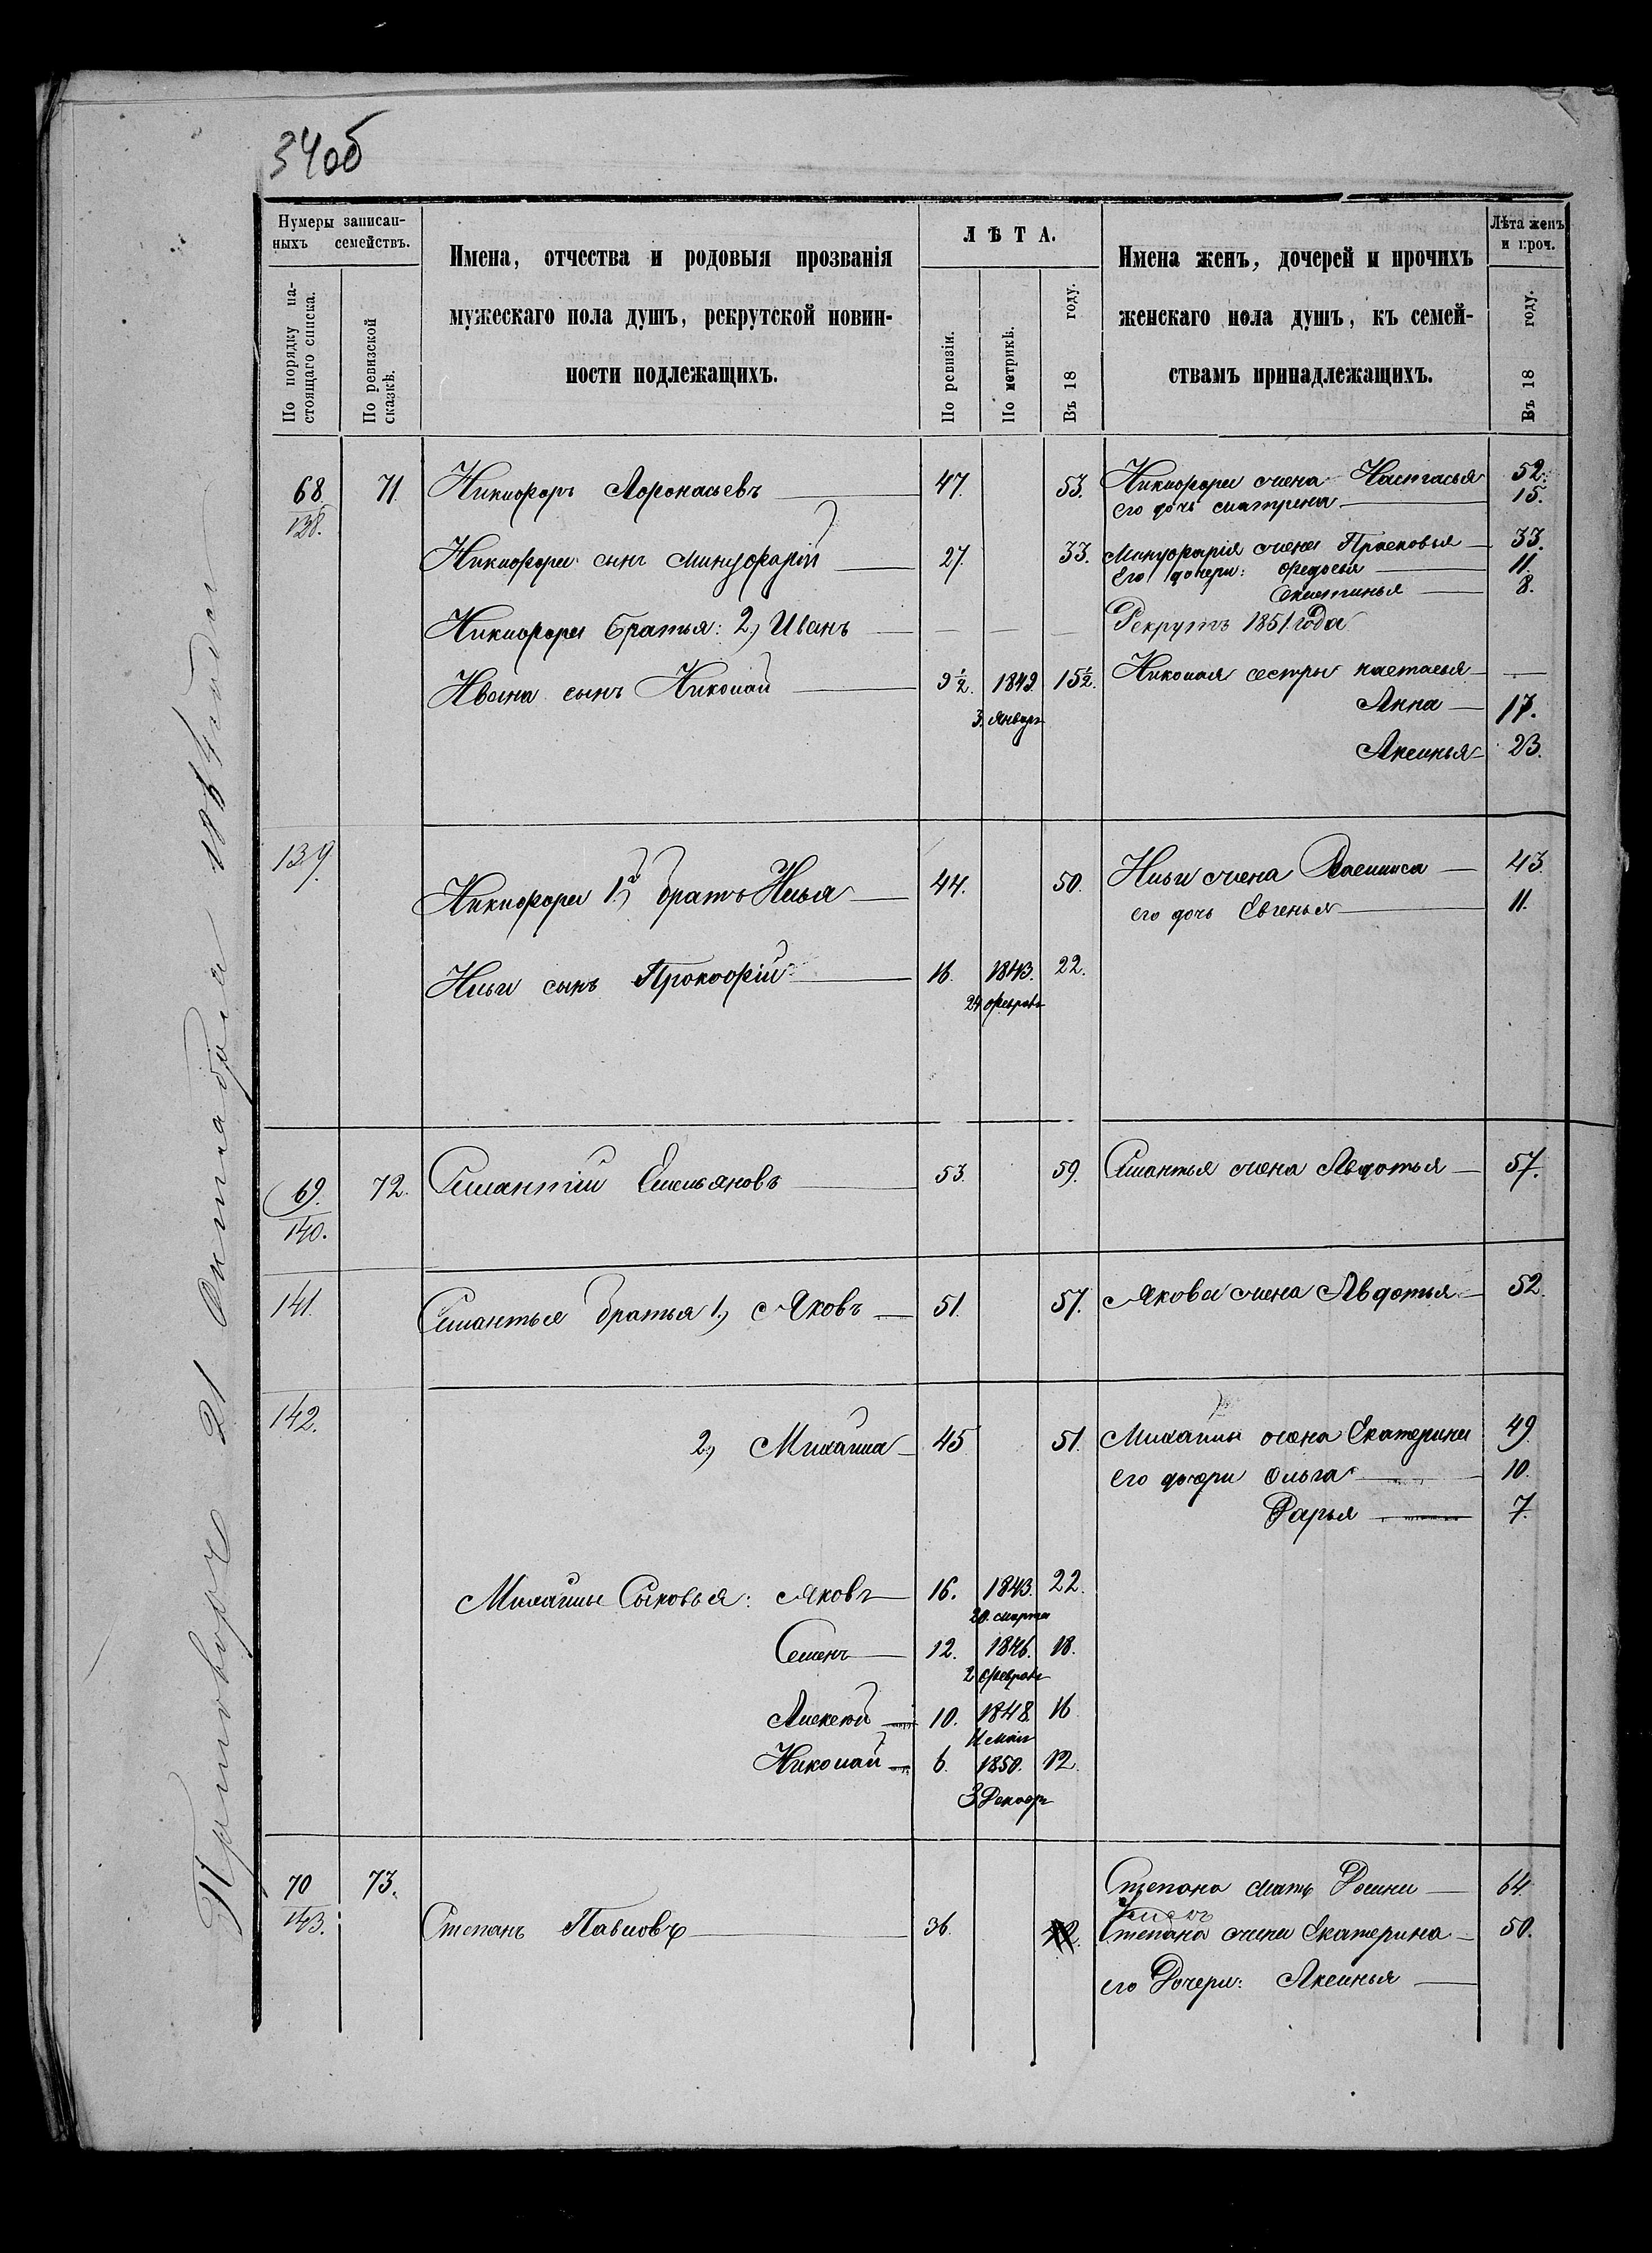 34об
Нумеры записан-
ныхъ семействъ.
По порядку на-
стоящаго списка.
По ревизской
сказкѣ.
Имена, отчества и родовыя прозванія
мужескаго пола душъ, рекрутской повин-
ности подлежащихъ.
ЛѢТА.
По ревизіи.
По метрикѣ.
Въ 18 году.
Имена женъ, дочерей и прочихъ
женскаго пола душъ, къ семей-
ствамъ принадлежащихъ.
Лѣта женъ
и проч.
Въ 18 году.
68. 71. Никифоръ Афонасьевъ 47. 53. Никифора жена Настасья 52.
138. его дочь Матрена 15.
Никифора сынъ 27. 33. жена Прасковья 33.
Его дочери: Федосья 11.
8.
Никифора братья: 2) Иванъ Рекрутъ 1851 года
Ивана сынъ Николай 9½. 1849. 15½. Николая сестры Настасья
3 Январ Анна 17.
Аксинья 23.
139. Никифора 1й братъ Илья 44. 50. Ильи жена Васиписа 43.
его дочь Евгенья 11.
Ильи сынъ Прокофій 16. 1843. 22.
24 Феврал
69. 72. Емельяновъ 53. 59. жена Авдотья 57.
140.
141. братья 1) Яковъ 51. 57. Якова жена Авдотья 52.
142. 2) Михайла 45 51. Михайлы жена Екатерина 49.
его дочери Ольга 10.
Дарья 7.
Михайлы Сыновья: Яковъ 16. 1843. 22.
20. Марта
Семенъ 12. 1846. 18.
2 Феврал
Алексей 10. 1848. 16
11 Маія
Николай 6. 1850. 12.
3 Декабр
70 73. Степана мать 64.
143. Степанъ Павловъ 36. 42. Степана жена Екатерина 50.
его Дочери: Аксинья
Приговоре 21 Октября 1864 года